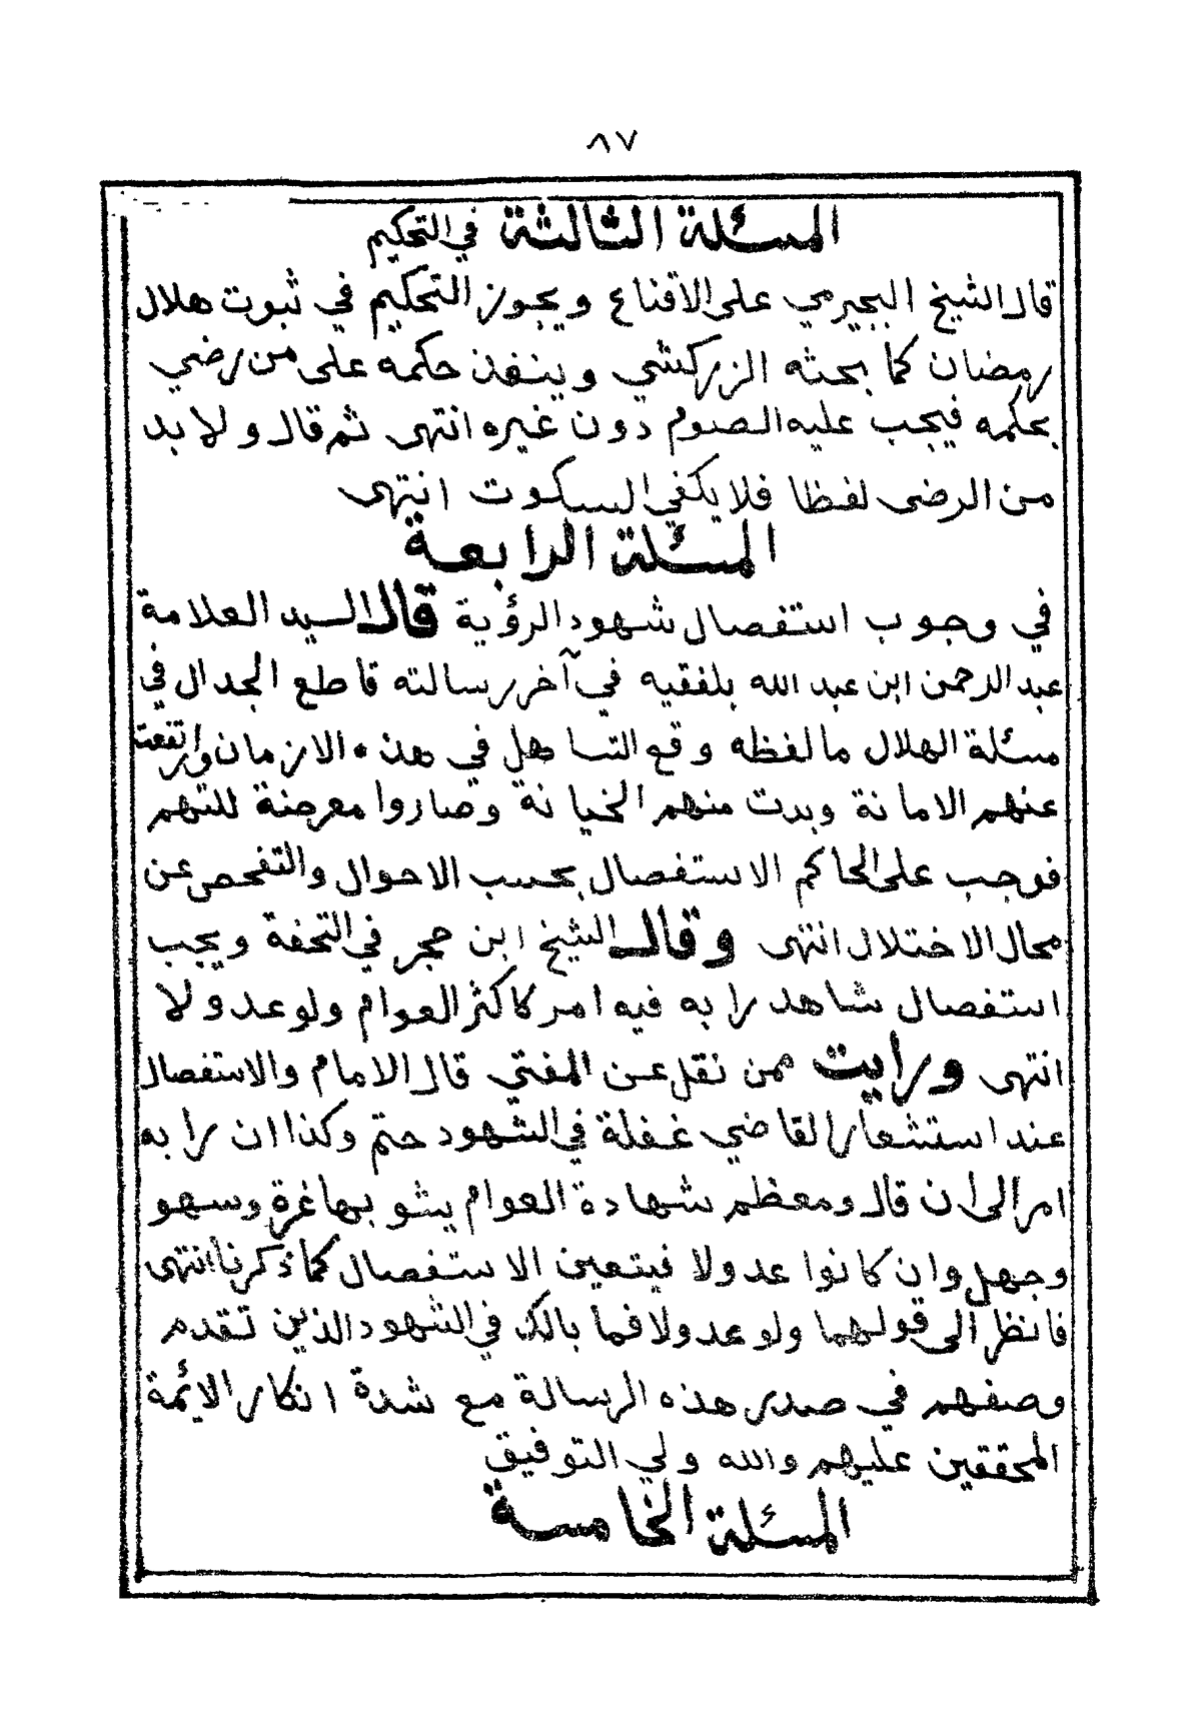 ٨٧
المسئلة الثالثة في التحكيم
قال الشيخ البجيرمي على الاقناع ويجوز التحكيم في ثبوت هلال
رمضان كما بحثه الزركشي وينفذ حكمه على من رضي
بحكمه فيجب عليه الصوم دون غيره انتهى ثم قال ولا بد
من الرضى لفظا فلا يكفي السكوت انتهى
المسئلة الرابعة
في وجوب استفصال شهود الرؤية قال السيد العلامة
عبد الرحمن ابن عبد الله بلفقيه في آخر رسالته قاطع الجدال في
مسئلة الهلال ما لفظه وقع التساهل في هذه الازمان وارتفعت
عنهم الامانة وبدت منهم الخيانة وصاروا معرضة للتهم
فوجب على الحاكم الاستفصال بحسب الاحوال والتفحص عن
محال الاختلال انتهى وقال الشيخ ابن حجر في التحفة ويجب
استفصال شاهد رابه فيه امر كاكثر العوام ولو عدولا
انتهى ورايت ممن نقل عن المفتي قال الامام والاستفصال
عند استشعار القاضي غفلة في الشهود حتم وكذا ان رابه
امر الى ان قال ومعظم شهادة العوام يشوبها غرة وسهو
وجهل وان كانوا عدولا فيتعين الاستفصال كما ذكرنا انتهى
فانظر الى قولهما ولو عدولا فما بالك في الشهود الذين تقدم
وصفهم في صدر هذه الرسالة مع شدة انكار الايمة
المحققين عليهم والله ولي التوفيق
المسئلة الخامسة